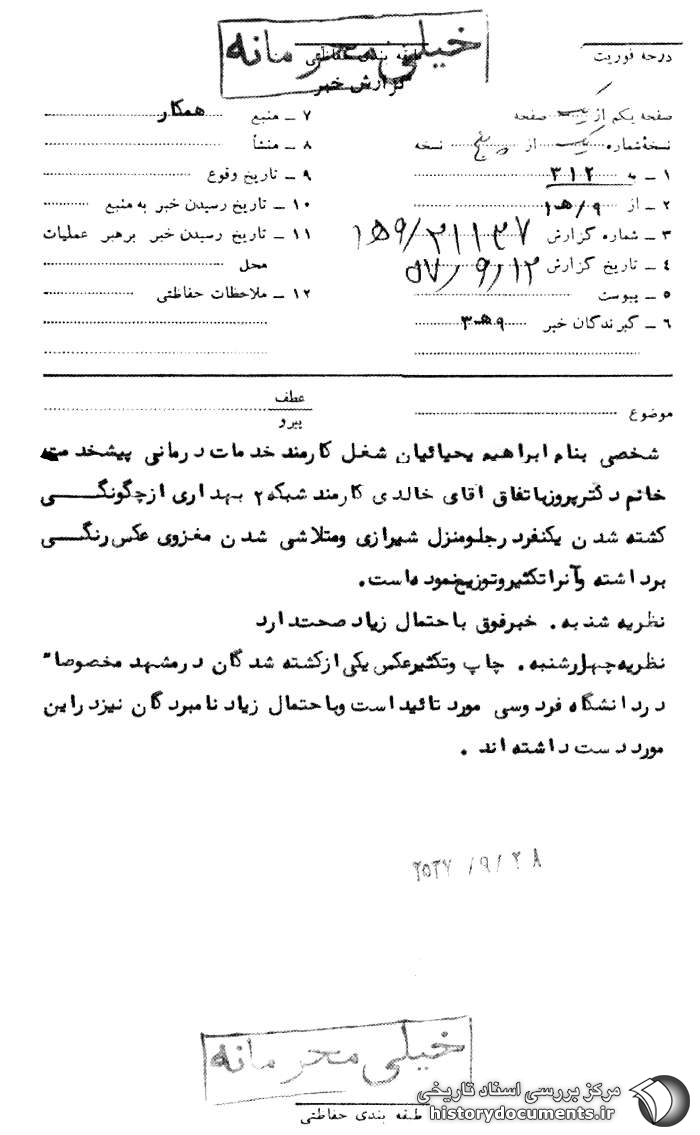 خیلی محرمانه
طبقه بندی حفاظتی
گزارش خبر
درجه فوریت
صفحه یکم از یک صفحه
نسخه شماره یک از پنج نسخه
۱ – به ۳۱۲
۲ – از ۹/ﻫ۱
۳ – شماره گزارش ۱ﻫ۹/۲۱۱۳۷
۴ – تاریخ گزارش ۵۷/۹/۱۲
۵ – پیوست
۶ – گیرندگان خبر ۹ﻫ۳
۷ – منبع همکار
۸ – منشأ
۹ – تاریخ وقوع
۱۰ – تاریخ رسیدن خبر به منبع
۱۱ – تاریخ رسیدن خبر برهبر عملیات
محل
۱۲ – ملاحظات حفاظتی
موضوع
عطف
پیرو
شخصی بنام ابراهیم یحیائیان شغل کارمند خدمات درمانی پیشخدمت
خانم دکتر پروز باتفاق آقای خالدی کارمند شبکه ۲ بهداری ازچگونگی
کشته شدن یکنفرد رجلومنزل شیرازی ومتلاشی شدن مغزوی عکس رنگی
برداشته وآنراتکثیروتوزیع نموده است.
نظریه شنبه. خبرفوق باحتمال زیاد صحت دارد
نظریه چهارشنبه. چاپ وتکثیرعکس یکی ازکشته شدگان درمشهد مخصوصا"
دردانشگاه فردوسی مورد تائید است وباحتمال زیاد نامبردگان نیزدراین
مورد دست داشته اند.
۲۵۳۷/۹/۲۸
خیلی محرمانه
طبقه بندی حفاظتی
مرکز بررسی اسناد تاریخی
historydocuments.ir